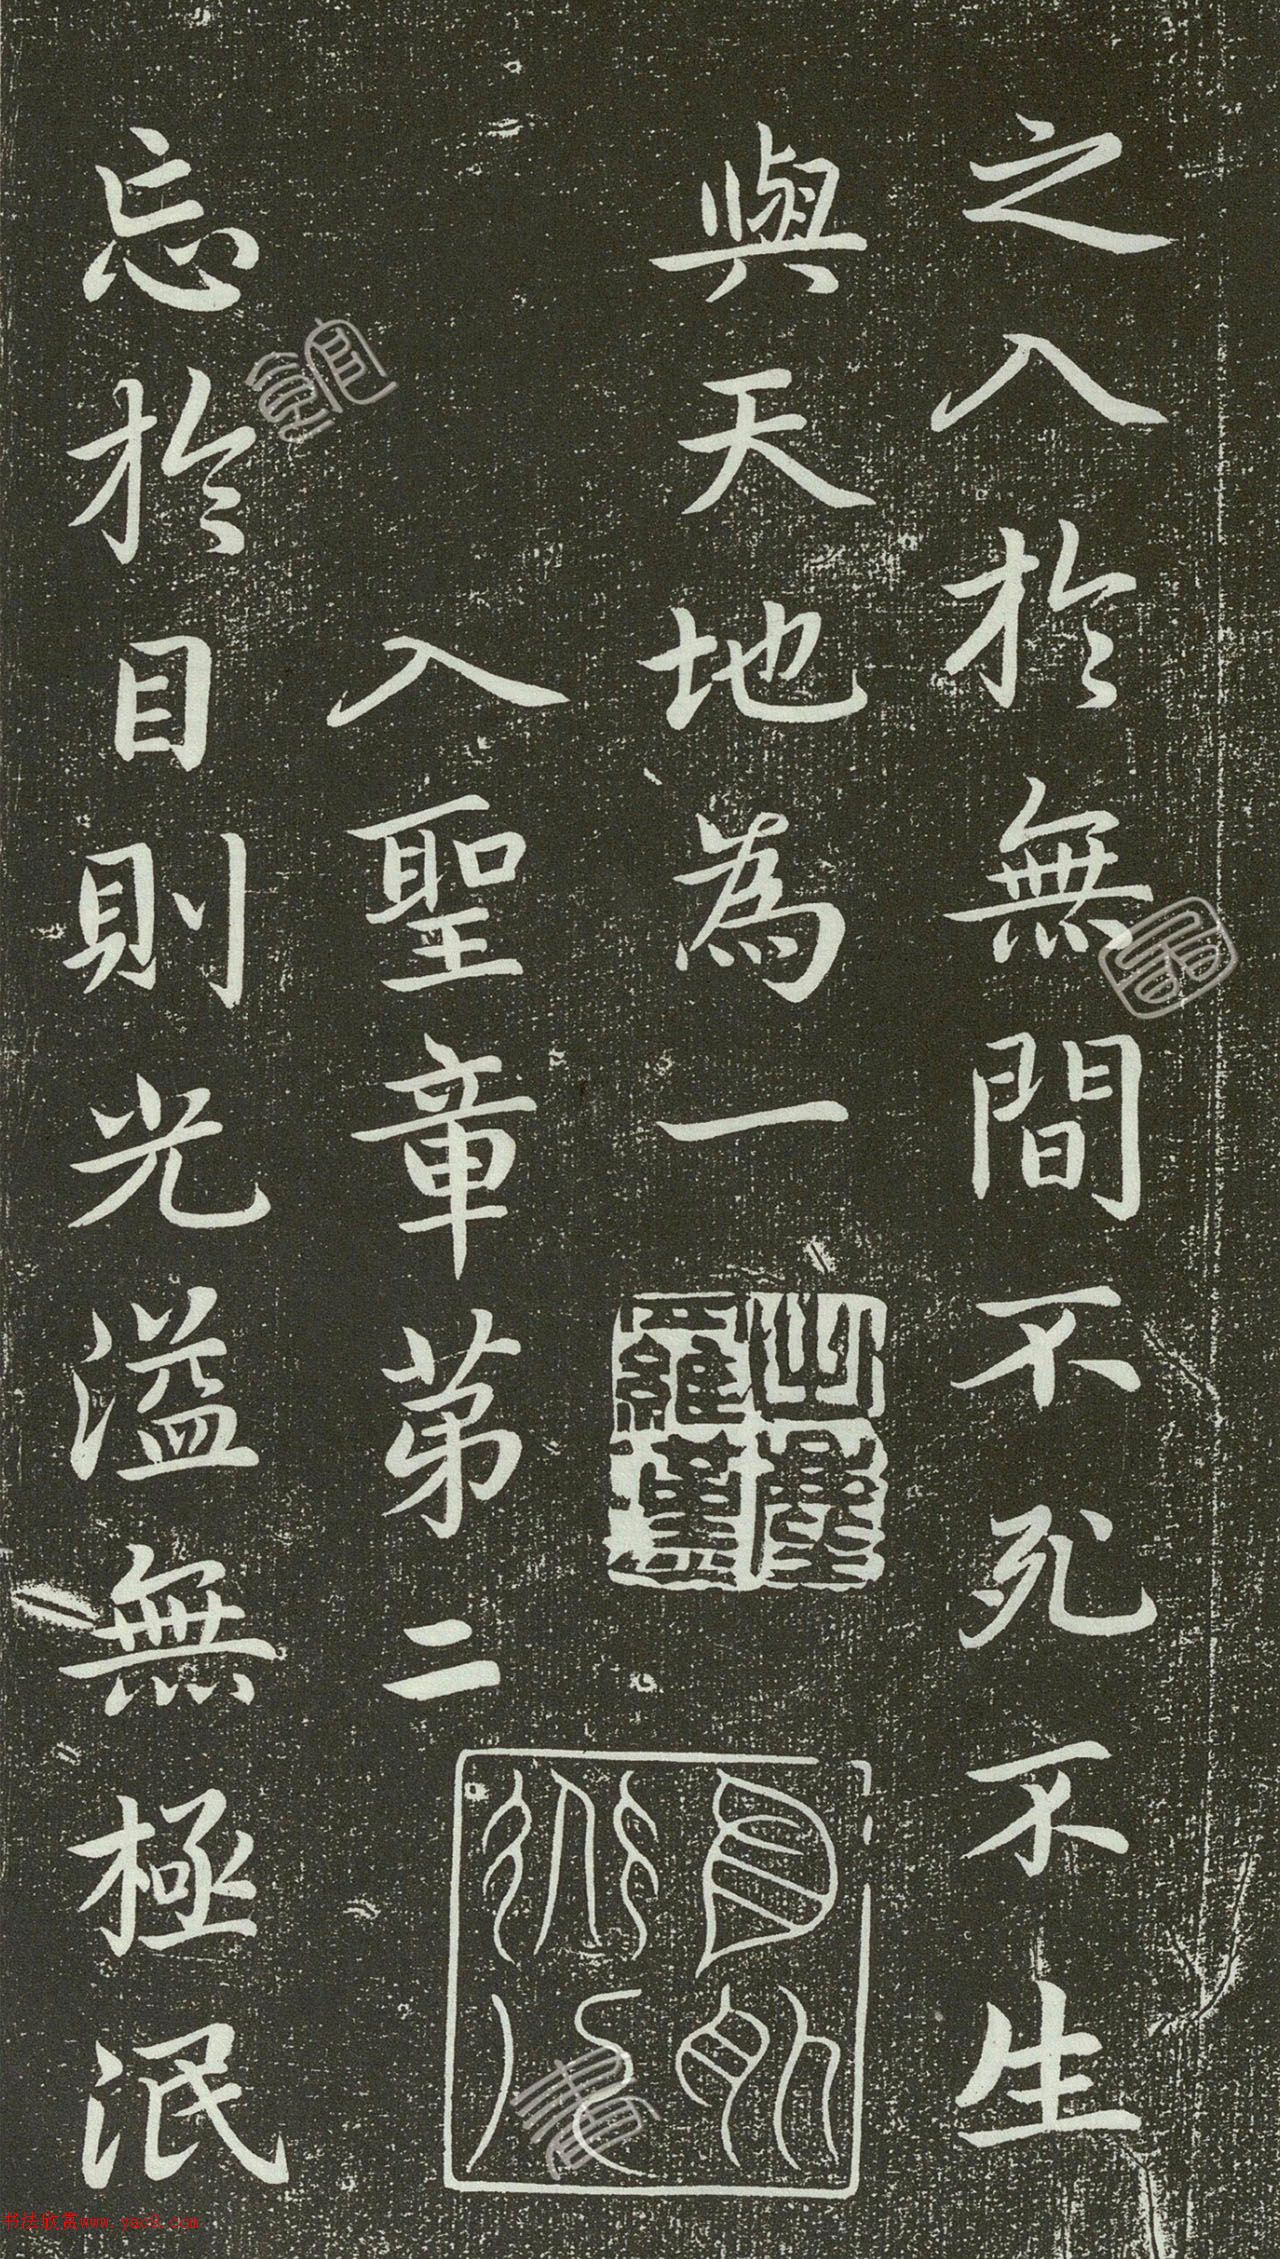 之入於無間不死不生
與天地為一
入聖章第二
忘於目則光溢無極泯
书法欣赏www.yac8.com